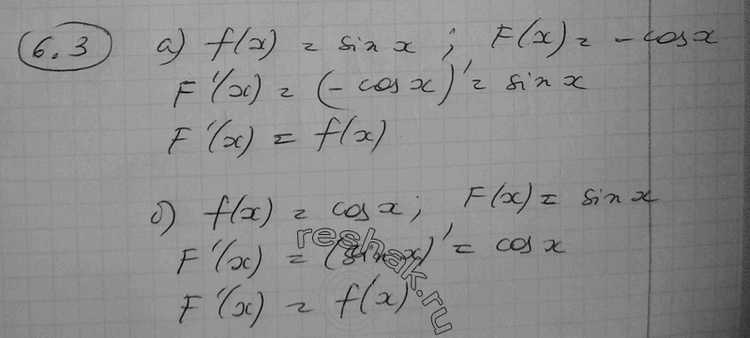 6.3 а) f(x) = sin x ; F(x) = - cos x
F'(x) = (- cos x)' = sin x
F'(x) = f(x)
б) f(x) = cos x ; F(x) = sin x
F'(x) = (sin x)' = cos x
F'(x) = f(x)
reshak.ru